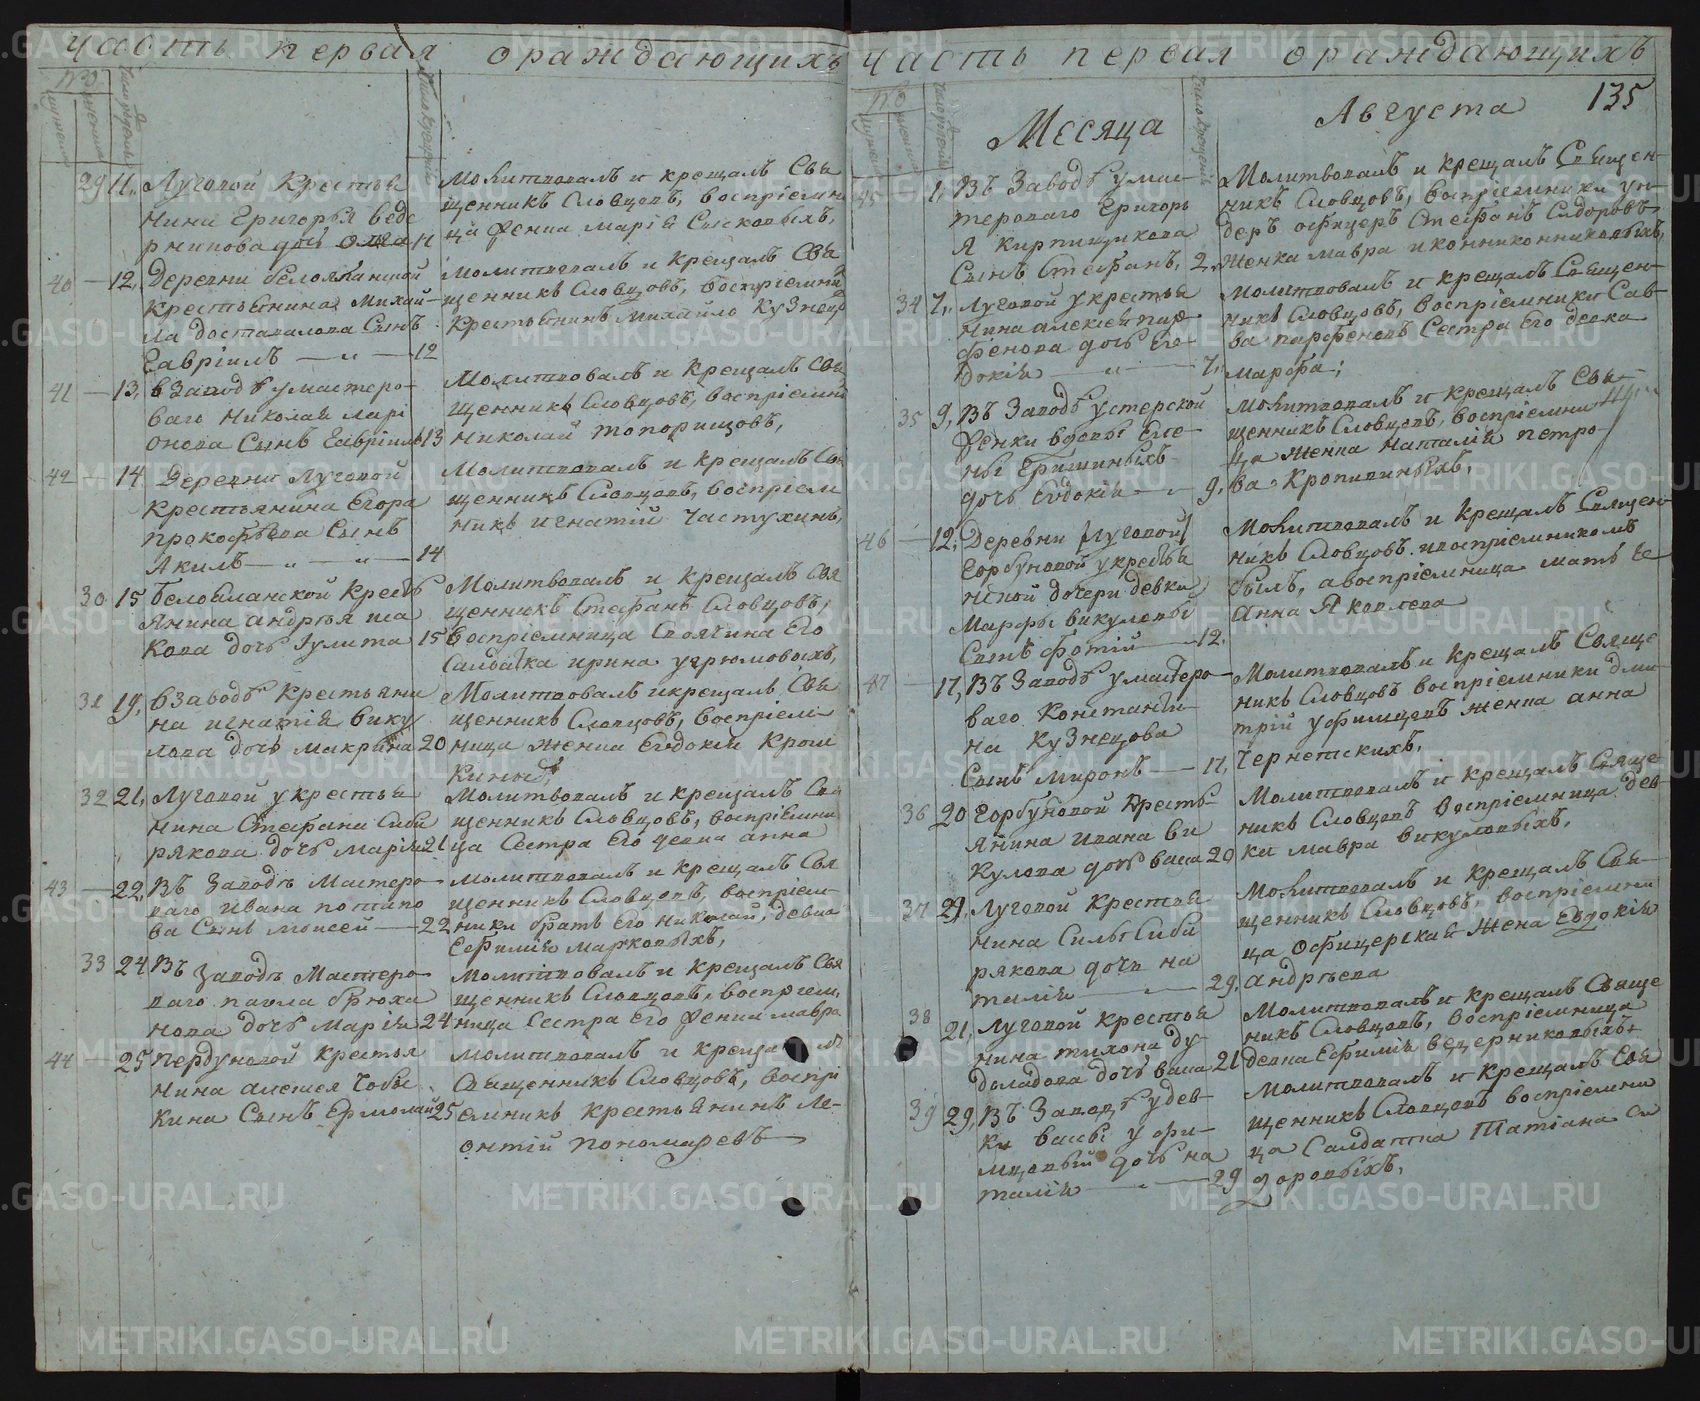 часть первая ораждающихъ
29 11. Луговой крестья
нина Григорья веде
рникова дочь Олга 11
Молитвовалъ и крещалъ Свя
щенникъ Словцовъ, воспріемни
ца Женка Марія Сысковыхъ,
40 — 12, Деревни белояланской
крестьянина Михай
ла доставалова Сынъ
Гавріилъ — „ — 12
молитвовалъ и крещалъ Свя
щенникъ Словцовъ, воспріемни
крестьянинъ Михайло Кузнец
41 — 13, в Заводѣ у мастеро
ваго Николая ларі
онова Сынъ Гавріилъ 13
Молитвовалъ и крещалъ Свя
щенникъ Словцовъ, воспріемни
Николай топорищовъ,
42 — 14 Деревни Луговой
крестьянина Егора
прокофьева Сынъ
Акилъ — „ — „ — 14
Молитвовалъ и крещалъ Свя
щенникъ Словцовъ, воспріем
никъ игнатій Частухинъ,
30 15 белоеланской кресть
янина андрея
кова дочь Іулита 15
Молитвовалъ и крещалъ Свя
щенникъ Стефанъ Словцовъ,
воспріемница Своячина Его
Салдатка ирина угрюмовыхъ,
31 19, в Заводѣ крестьяни
на игнатія вику
лова дочь макрина 20
Молитвовалъ и крещалъ Свя
щенникъ Словцовъ, воспріем
ница женка Евдокія
32 21, Луговой у крестья
нина Стефана Сиби
рякова дочь марія 21
Молитвовалъ и крещалъ Свя
щенникъ Словцовъ, воспріемни
ца Сестра Его девка анна
43 — 22, Въ Заводѣ Мастеро
ваго ивана потапо
ва Сынъ моисей — 22
молитвовалъ и крещалъ Свя
щенникъ Словцовъ, воспріем
ники братъ Его Николай, девка
Ефимія марковыхъ,
33 24 Въ Заводѣ Мастеро
ваго павла брюха
нова дочь Марія 24
молитвовалъ и крещалъ Свя
щенникъ Словцовъ, воспріем
ница Сестра Его Женка мавра
44 — 25 Гордуновой крестья
нина алексея Чобы
кина Сынъ Ермолай 25
молитвовалъ и крещалъ
Священникъ Словцовъ, воспрі
емникъ крестьянинъ Ле
онтій пономаревъ
часть первая ораждающихъ
135
Месяца Августа
45 1, Въ Заводѣ у мас
тероваго Григорь
я Кирпищикова
Сынъ Стефанъ, 2.
Молитвовалъ и крещалъ Священ
никъ Словцовъ, воспріемники ун
деръ офицеръ Стефанъ Сидоровъ,
Женка Мавра
34 7, Луговой у крестья
нина алексея пар
фенова дочь Ев
докія — „ — 7,
Молитвовалъ и крещалъ Священ
никъ Словцовъ, воспріемники Сав
ва парфеновъ Сестра Его девка
марфа;
35 9, Въ Заводѣ
Женки вдовы Еле
ны Гришиныхъ
дочь Евдокія — „ 9,
Молитвовалъ и крещалъ Свя
щенникъ Словцовъ, воспріемни
ца Женка Наталія петро
ва Кропивиныхъ,
46 — 12, Деревни Луговой
Горбуновой у кресья
нской дочери девки
Марфы викуловы
Сынъ фотій — 12.
Молитвовалъ и крещалъ Священ
никъ Словцовъ. ивоспріемникомъ
былъ, авоспріемница мать Ее
Анна Яковлева
47 — 17, Въ Заводѣ у мастеро
ваго Константи
на Кузнецова
Сынъ миронъ — 17,
Молитвовалъ и крещалъ Свяще
никъ Словцовъ воспріемники дми
трій уфимцовъ женка анна
Чернетскихъ.
36 20 Горбуновой Кресть
янина ивана ви
кулова дочь васа 20
Молитвовалъ и крещалъ Свяще
никъ Словцовъ воспріемница дев
ки мавра викуловыхъ.
37 29, Луговой крестья
нина Силы Сиби
рякова дочь на
талія — „ — 29.
Молитвовалъ и крещалъ Свя
щенникъ Словцовъ, воспріемни
ца офицерская Жена Евдокія
андреева
38 21, Луговой крестья
нина тихона ду
доладова дочь васа 21
Молитвовалъ и крещалъ Свяще
никъ Словцовъ, воспріемница
девка Ефимія ведерниковыхъ
39 29, Въ Заводѣ у дев
ки васы у фи
мцовый дочь на
талія — „ — 29
Молитвовалъ и крещалъ Свя
щенникъ Словцовъ воспріемни
ца Салдатка Татіана Си
доровыхъ.
METRIKI.GASO-URAL.RU